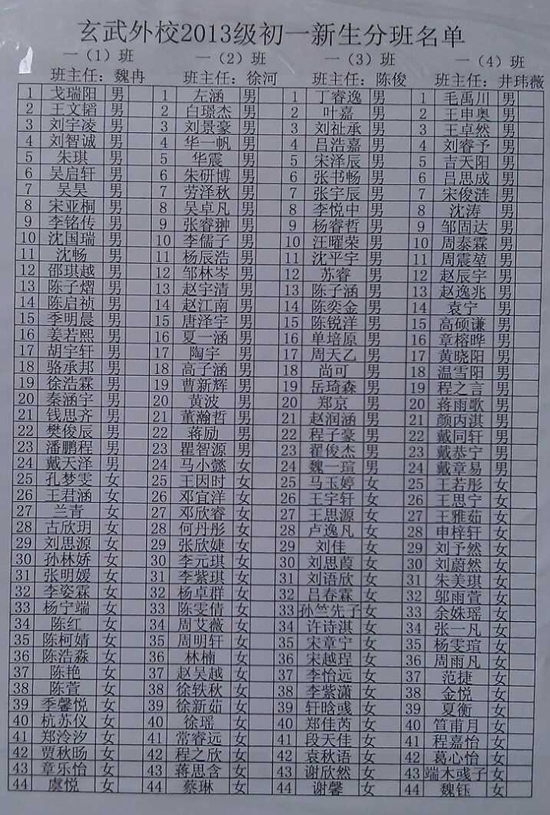 玄武外校2013级初一新生分班名单
一（1）班 一（2）班 一（3）班 一（4）班
班主任：魏冉 班主任：徐河 班主任：陈俊 班主任：井玮薇
1 戈瑞阳 男 1 左涵 男 1 丁睿逸 男 1 毛禹川 男
2 王文韬 男 2 白璟杰 男 2 叶嘉 男 2 王申奥 男
3 刘宇凌 男 3 刘景豪 男 3 刘祉承 男 3 王卓然 男
4 刘智诚 男 4 华一帆 男 4 吕浩嘉 男 4 刘睿予 男
5 朱琪 男 5 华震 男 5 宋泽辰 男 5 吉天阳 男
6 吴启轩 男 6 朱研博 男 6 张书畅 男 6 吕思成 男
7 吴昊 男 7 劳泽秋 男 7 张宇辰 男 7 宋俊涟 男
8 宋亚桐 男 8 吴卓凡 男 8 李悦中 男 8 沈涛 男
9 李铭传 男 9 张睿翀 男 9 杨睿哲 男 9 邹固达 男
10 沈国瑞 男 10 李儒子 男 10 汪曜荣 男 10 周泰霖 男
11 沈畅 男 11 杨辰浩 男 11 沈平宇 男 11 周震堃 男
12 邵琪越 男 12 邹林岑 男 12 苏睿 男 12 赵辰宇 男
13 陈子熠 男 13 赵宇清 男 13 陈子涵 男 13 赵逸兆 男
14 陈启祯 男 14 赵江南 男 14 陈奕金 男 14 袁宁 男
15 季明晨 男 15 唐泽宇 男 15 陈锐洋 男 15 高硕谦 男
16 姜若熙 男 16 夏一涵 男 16 单培原 男 16 章榕晔 男
17 胡宇轩 男 17 陶宇 男 17 周天乙 男 17 黄晓阳 男
18 骆承邦 男 18 高子涵 男 18 尚可 男 18 温雪阳 男
19 徐浩霖 男 19 曹新辉 男 19 岳琦森 男 19 程之言 男
20 秦涵宇 男 20 黄波 男 20 郑京 男 20 蒋雨歌 男
21 钱思齐 男 21 董瀚哲 男 21 赵润涵 男 21 颜内淇 男
22 樊俊辰 男 22 蒋励 男 22 程子豪 男 22 戴同轩 男
23 潘鹏程 男 23 瞿智源 男 23 翟俊杰 男 23 戴恭宁 男
24 戴天泽 男 24 马小懿 女 24 魏一瑄 男 24 戴章易 男
25 孔梦雯 女 25 王因时 女 25 马玉婷 女 25 王若彤 女
26 王君涵 女 26 邓宜洋 女 26 王宇轩 女 26 王思宁 女
27 兰青 女 27 邓欣睿 女 27 王思源 女 27 王雅茹 女
28 古欣玥 女 28 何丹彤 女 28 卢逸凡 女 28 申梓轩 女
29 刘思源 女 29 张欣婕 女 29 刘佳 女 29 刘予然 女
30 孙林娇 女 30 李元琪 女 30 刘思葭 女 30 刘蔚然 女
31 张明媛 女 31 李紫琪 女 31 刘语欣 女 31 朱美琪 女
32 李姿霖 女 32 杨卓群 女 32 吕春霖 女 32 邬雨萱 女
33 杨宁端 女 33 陈雯倩 女 33 孙竺先子 女 33 余姝瑶 女
34 陈红 女 34 周艾薇 女 34 许诗淇 女 34 张一凡 女
35 陈柯婧 女 35 周明轩 女 35 宋章宁 女 35 杨雯瑄 女
36 陈浩淼 女 36 林楠 女 36 宋越珵 女 36 周雨凡 女
37 陈艳 女 37 赵吴越 女 37 李怡远 女 37 范捷 女
38 陈萱 女 38 徐轶秋 女 38 李紫潇 女 38 金悦 女
39 季馨悦 女 39 徐新茹 女 39 轩晗彧 女 39 夏衡 女
40 杭苏仪 女 40 徐瑶 女 40 郑佳芮 女 40 笪甫月 女
41 郑泠汐 女 41 常睿远 女 41 段天佳 女 41 程嘉怡 女
42 贾秋旸 女 42 程之欣 女 42 袁秋语 女 42 葛心怡 女
43 章乐怡 女 43 蒋思含 女 43 谢欣然 女 43 端木彧子 女
44 虞悦 女 44 蔡琳 女 44 谢馨 女 44 魏钰 女